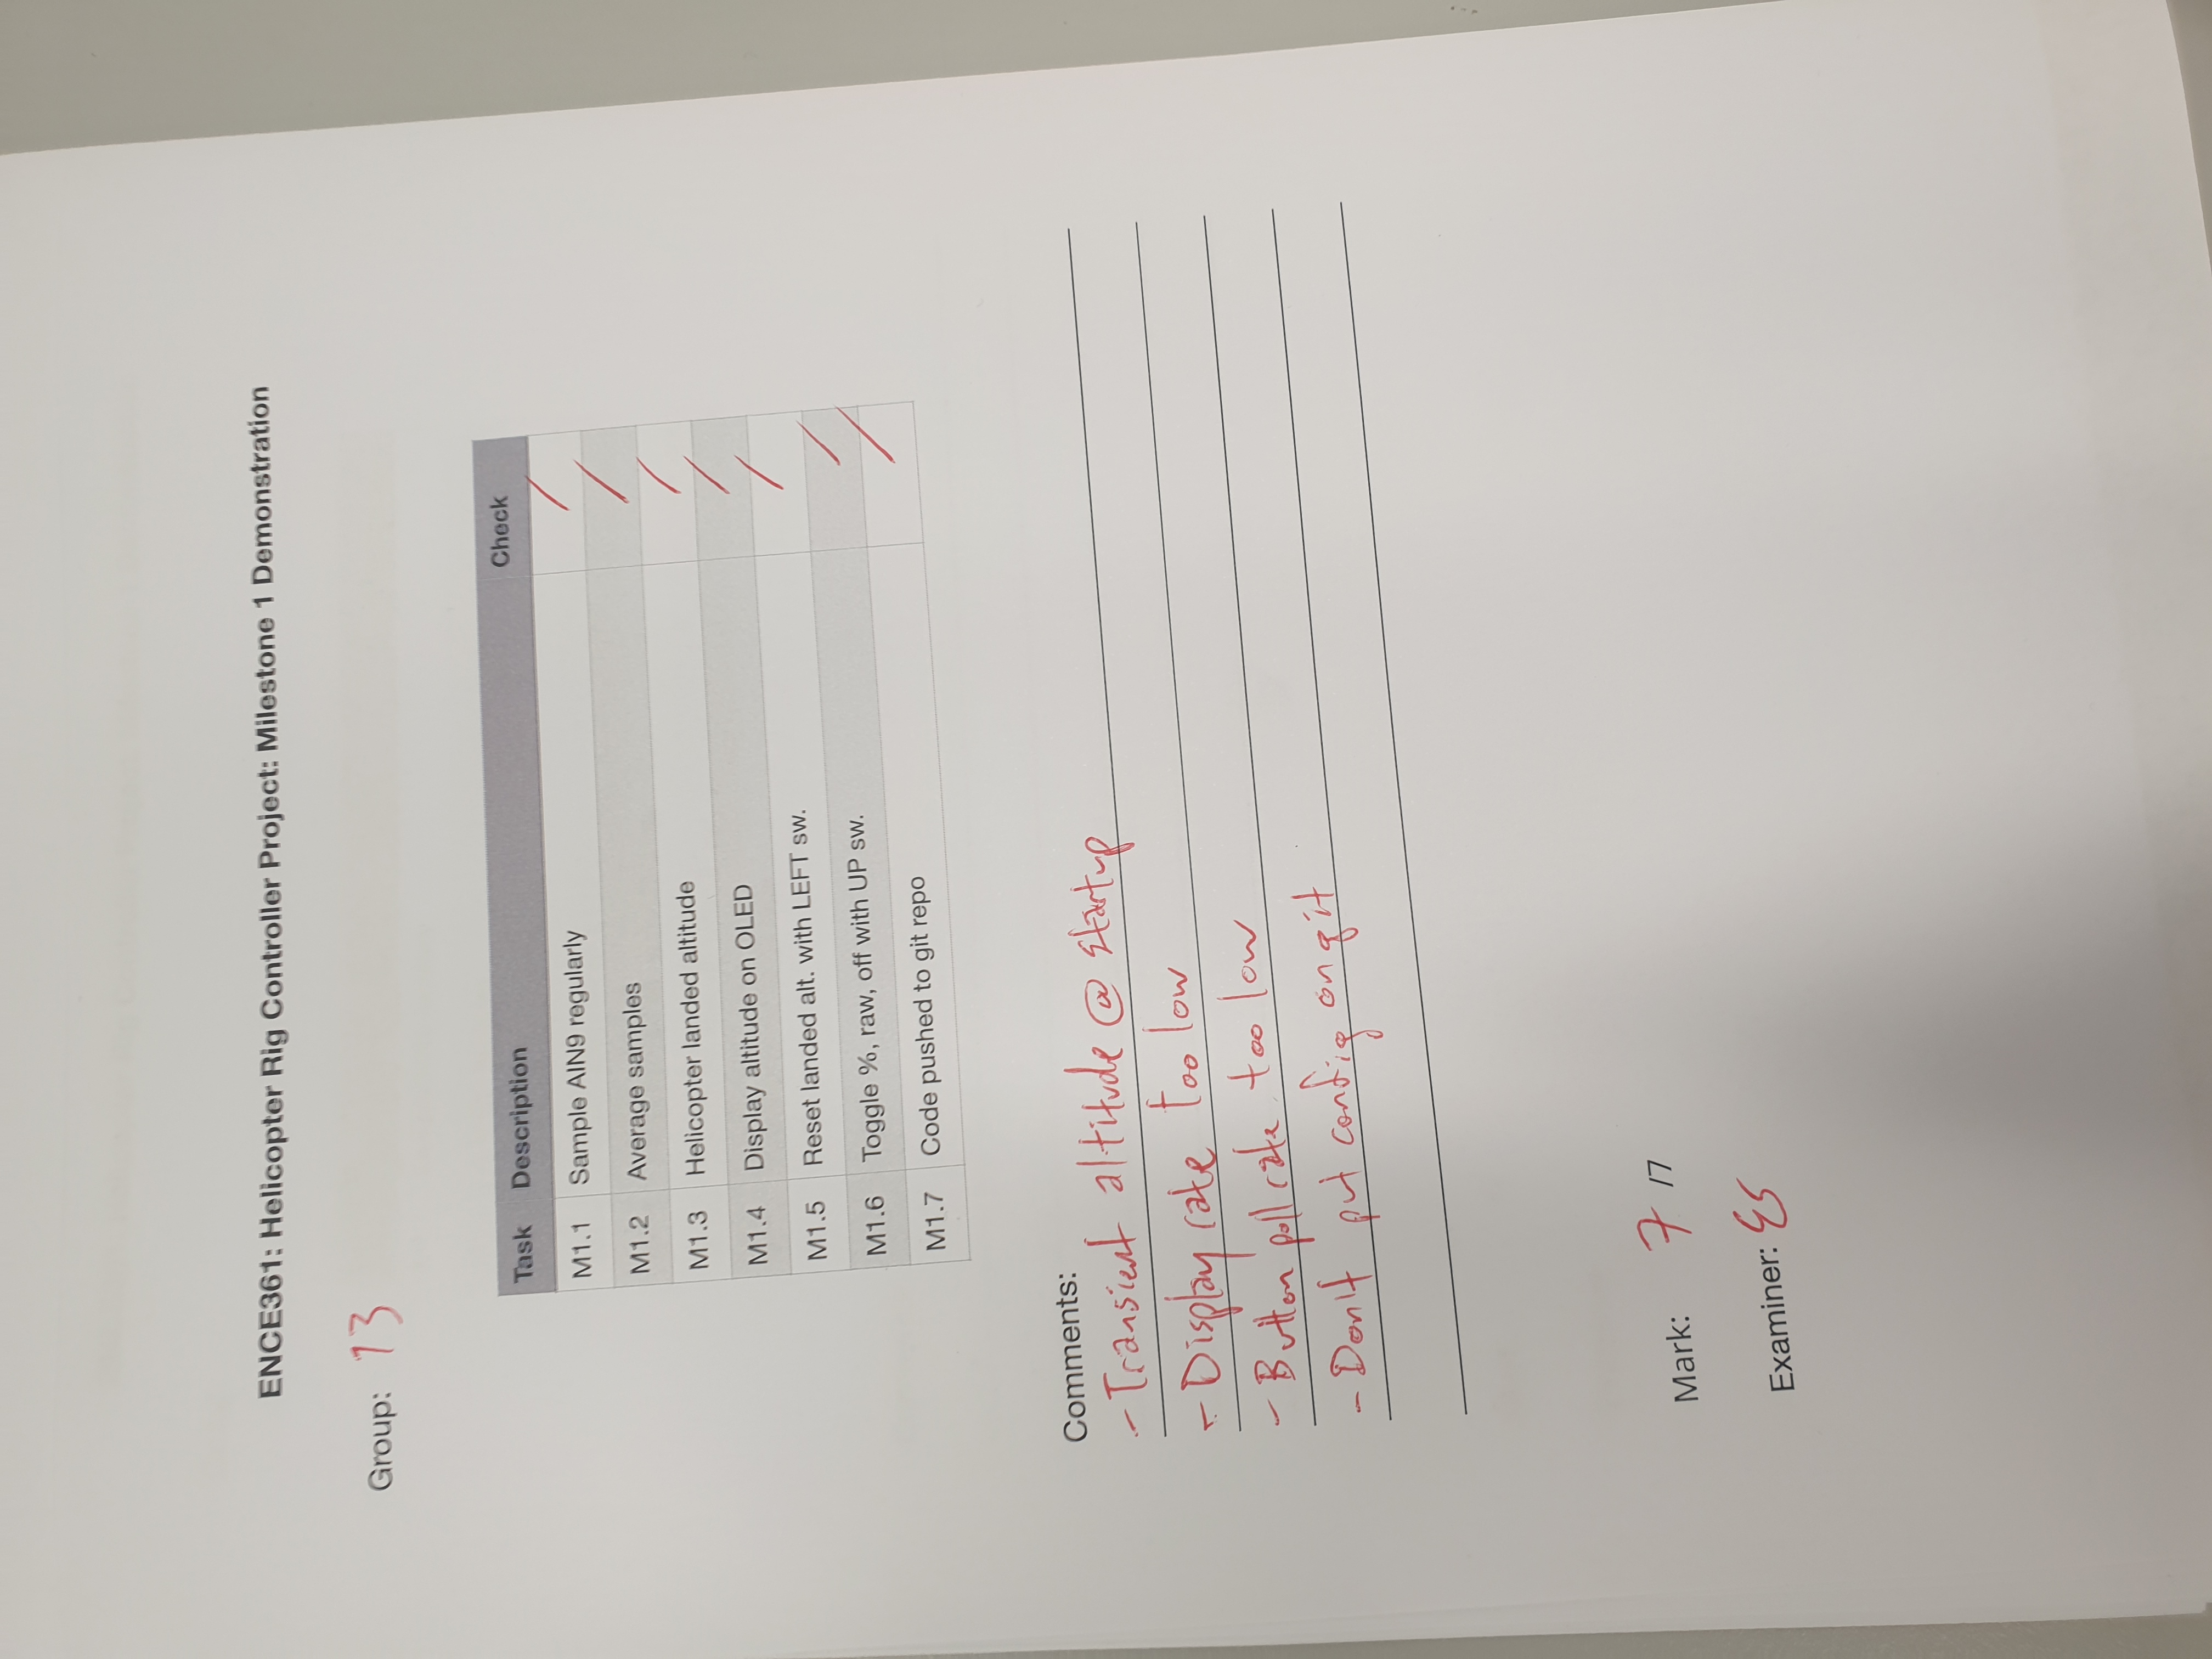 ENCE361: Helicopter Rig Controller Project: Milestone 1 Demonstration
Group: 13
Task Description Check
M1.1 Sample AIN9 regularly /
M1.2 Average samples /
M1.3 Helicopter landed altitude /
M1.4 Display altitude on OLED /
M1.5 Reset landed alt. with LEFT sw. /
M1.6 Toggle %, raw, off with UP sw. /
M1.7 Code pushed to git repo /
Comments:
- Transient altitude @ startup
- Display rate too low
- Button poll rate too low
- Don't put config on git
Mark: 7 /7
Examiner: ES